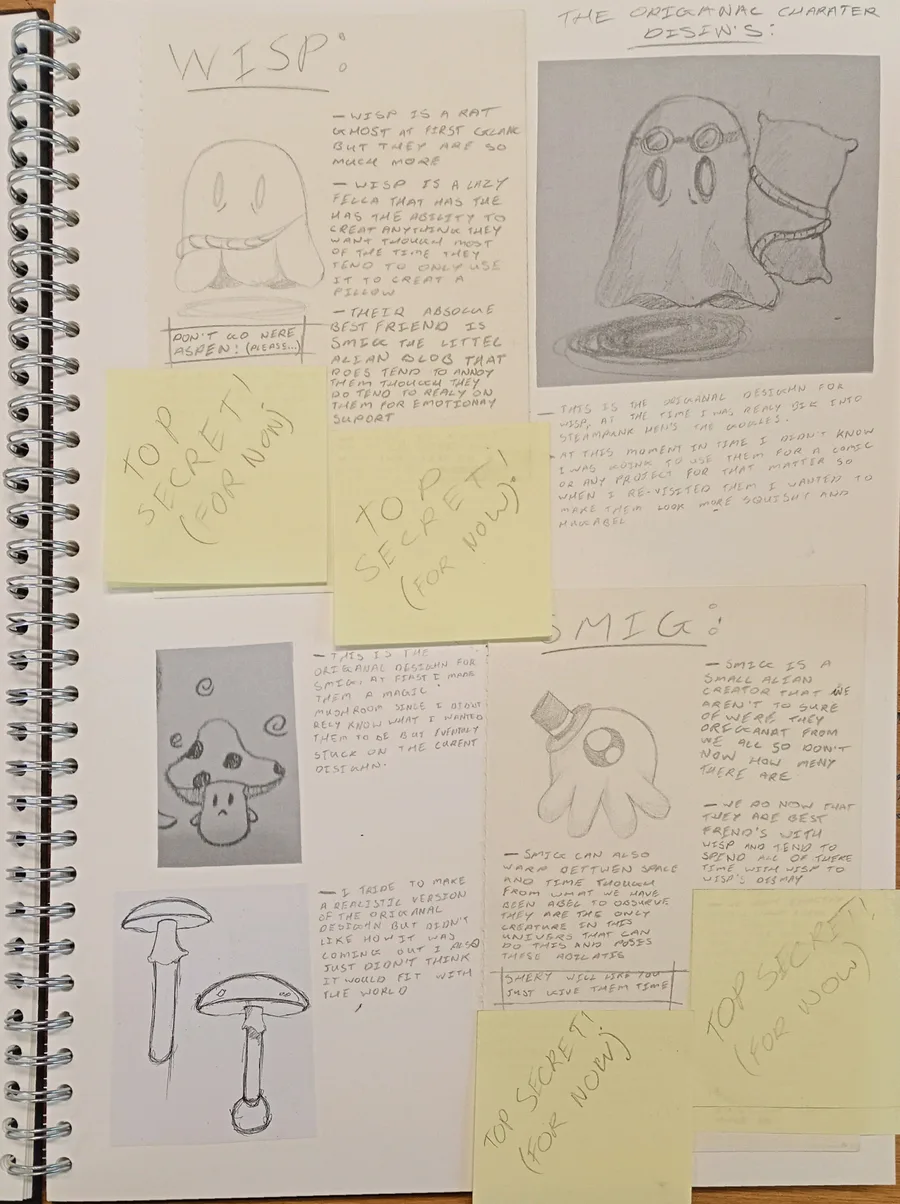 WISP:
- WISP IS A RAT
GHOST AT FIRST GLANC
BUT THEY ARE SO
MUCH MORE
- WISP IS A LAZY
FELLA THAT HAS THE
HAS THE ABILITY TO
CREAT ANYTHING THEY
WANT THOUGH MOST
OF THE TIME THEY
TEND TO ONLY USE
IT TO CREAT A
PILLOW
- THEIR ABSOLUE
BEST FRIEND IS
SMIG THE LITTEL
ALIAN BLOB THAT
DOES TEND TO ANNOY
THEM THOUGH THEY
DO TEND TO REALY ON
THEM FOR EMOTIONAY
SUPORT
DON'T GO HERE
ASPEN! (PLEASE...)
TOP
SECRET!
(FOR NOW)
TOP
SECRET!
(FOR NOW)
THE ORIGANAL CHARATER
DISIN'S:
- THIS IS THE ORIGANAL DESIGHN FOR
WISP, AT THE TIME I WAS REALY BIG INTO
STEAMPANK HENS THE GOGLES.
AT THIS MOMENT IN TIME I DIDN'T KNOW
I WAS GOING TO USE THEM FOR A COMIC
OR ANY PROJECT FOR THAT MATTER SO
WHEN I RE-VISITED THEM I WANTED TO
MAKE THEM LOOK MORE SQUISHY AND
HUGABEL
- THIS IS THE
ORIGANAL DESIGHN FOR
SMIG, AT FIRST I MADE
THEM A MAGIC
MUSHROOM SINCE I DIDN'T
RELY KNOW WHAT I WANTED
THEM TO BE BUT EVENTALY
STUCK ON THE CURENT
DISIGHN.
- I TRIDE TO MAKE
A REALISTIC VERSION
OF THE ORIGANAL
DESIGHN BUT DIDN'T
LIKE HOW IT WAS
COMING OUT I ALSO
JUST DIDN'T THINK
IT WOULD FIT WITH
THE WORLD
SMIG:
- SMIG IS A
SMALL ALIAN
CREATOR THAT WE
AREN'T TO SURE
OF WERE THEY
ORIGANAT FROM
WE ALL SO DON'T
NOW HOW MENY
THERE ARE
- WE DO NOW THAT
THEY ARE BEST
FREND'S WITH
WISP AND TEND TO
SPEND ALL OF THERE
TIME WITH WISP TO
WISP'S DISMAY
- SMIG CAN ALSO
WARP BETTWEN SPACE
AND TIME THOUGH
FROM WHAT WE HAVE
BEEN ABEL TO OBSURVE
THEY ARE THE ONLY
CREATURE IN THIS
UNIVERS THAT CAN
DO THIS AND POSES
THESE ABILATIS
WILL LIKE YOU
JUST GIVE THEM TIME
TOP SECRET!
(FOR NOW)
TOP SECRET!
(FOR NOW)